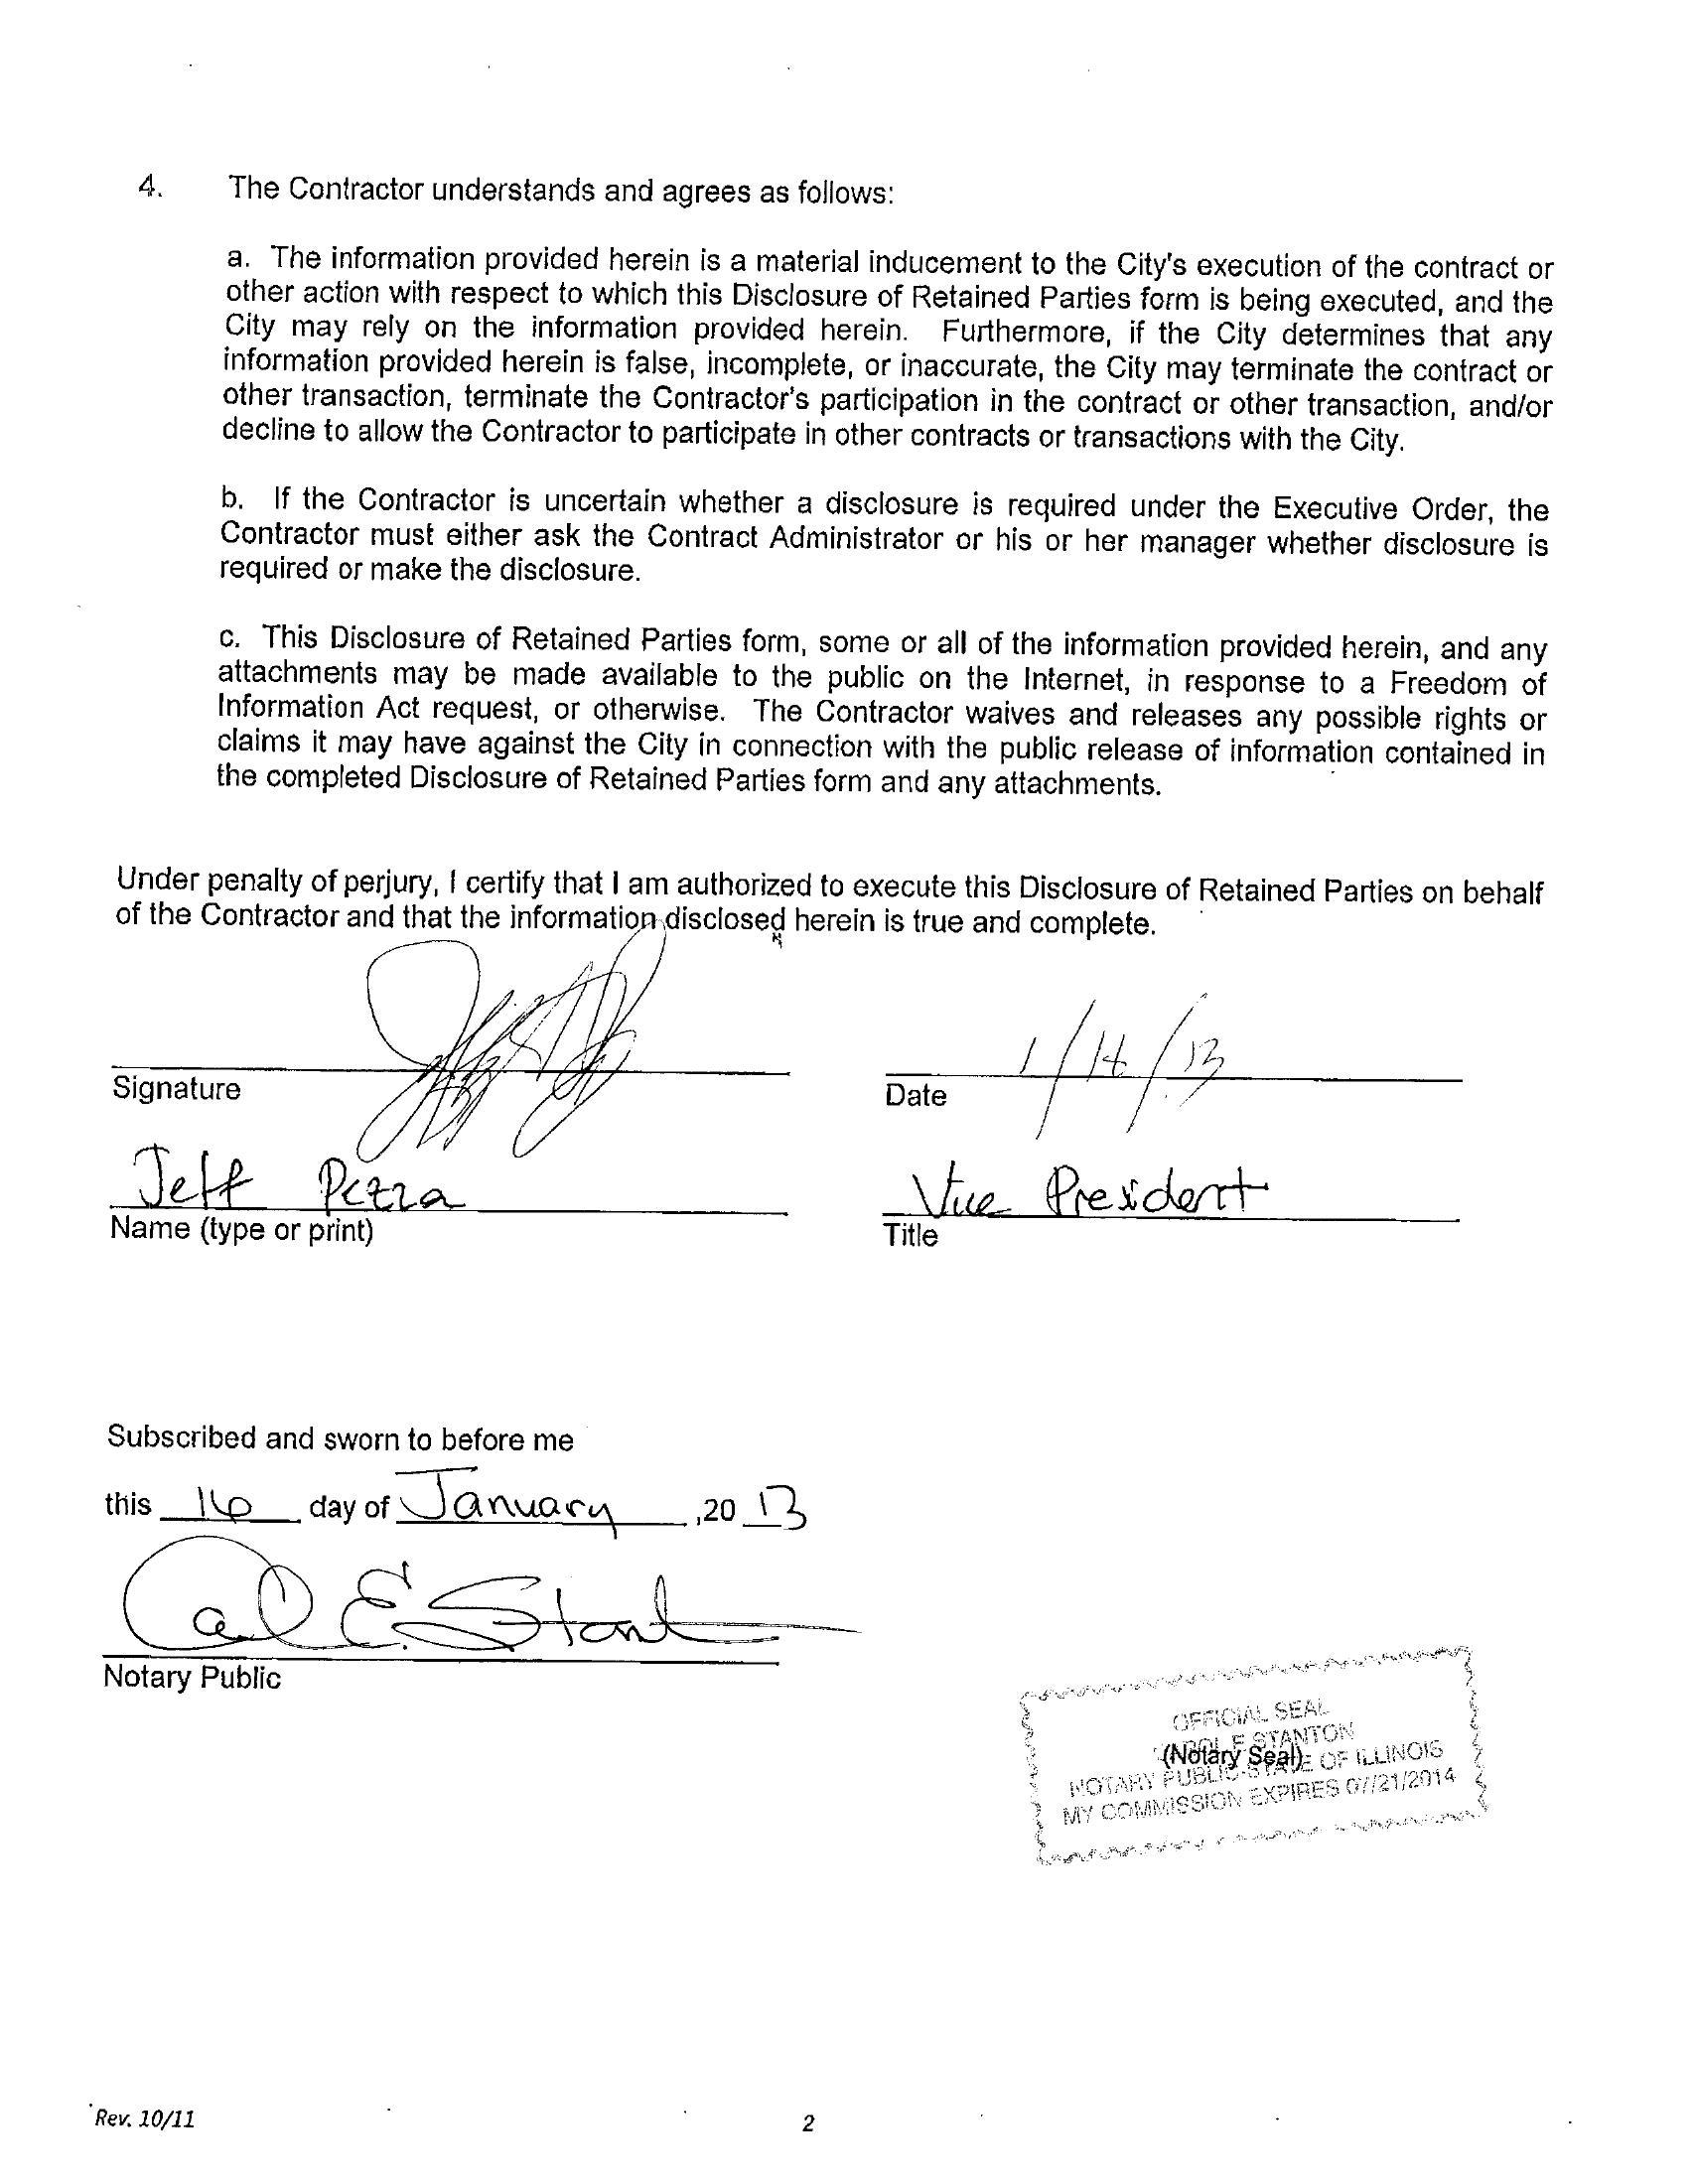 4. The Contractor understands and agrees as follows:
a. The information provided herein is a material inducement to the City's execution of the contract or
other action with respect to which this Disclosure of Retained Parties form is being executed, and the
City may rely on the information provided herein. Furthermore, if the City determines that any
information provided herein is false, incomplete, or inaccurate, the City may terminate the contract or
other transaction, terminate the Contractor's participation in the contract or other transaction, and/or
decline to allow the Contractor to participate in other contracts or transactions with the City.
b. If the Contractor is uncertain whether a disclosure is required under the Executive Order, the
Contractor must either ask the Contract Administrator or his or her manager whether disclosure is
required or make the disclosure.
c. This Disclosure of Retained Parties form, some or all of the information provided herein, and any
attachments may be made available to the public on the Internet, in response to a Freedom of
Information Act request, or otherwise. The Contractor waives and releases any possible rights or
claims it may have against the City in connection with the public release of information contained in
the completed Disclosure of Retained Parties form and any attachments.
Under penalty of perjury, I certify that I am authorized to execute this Disclosure of Retained Parties on behalf
of the Contractor and that the information disclosed herein is true and complete.
Signature
Date
Jeff
Name (type or print)
Vice President
Title
Subscribed and sworn to before me
this 16 day of January ,20 13
Notary Public
OFFICIAL SEAL
E STANTON
(Notary Seal)
NOTARY PUBLIC-STATE OF ILLINOIS
MY COMMISSION EXPIRES 07/21/2014
Rev. 10/11
2